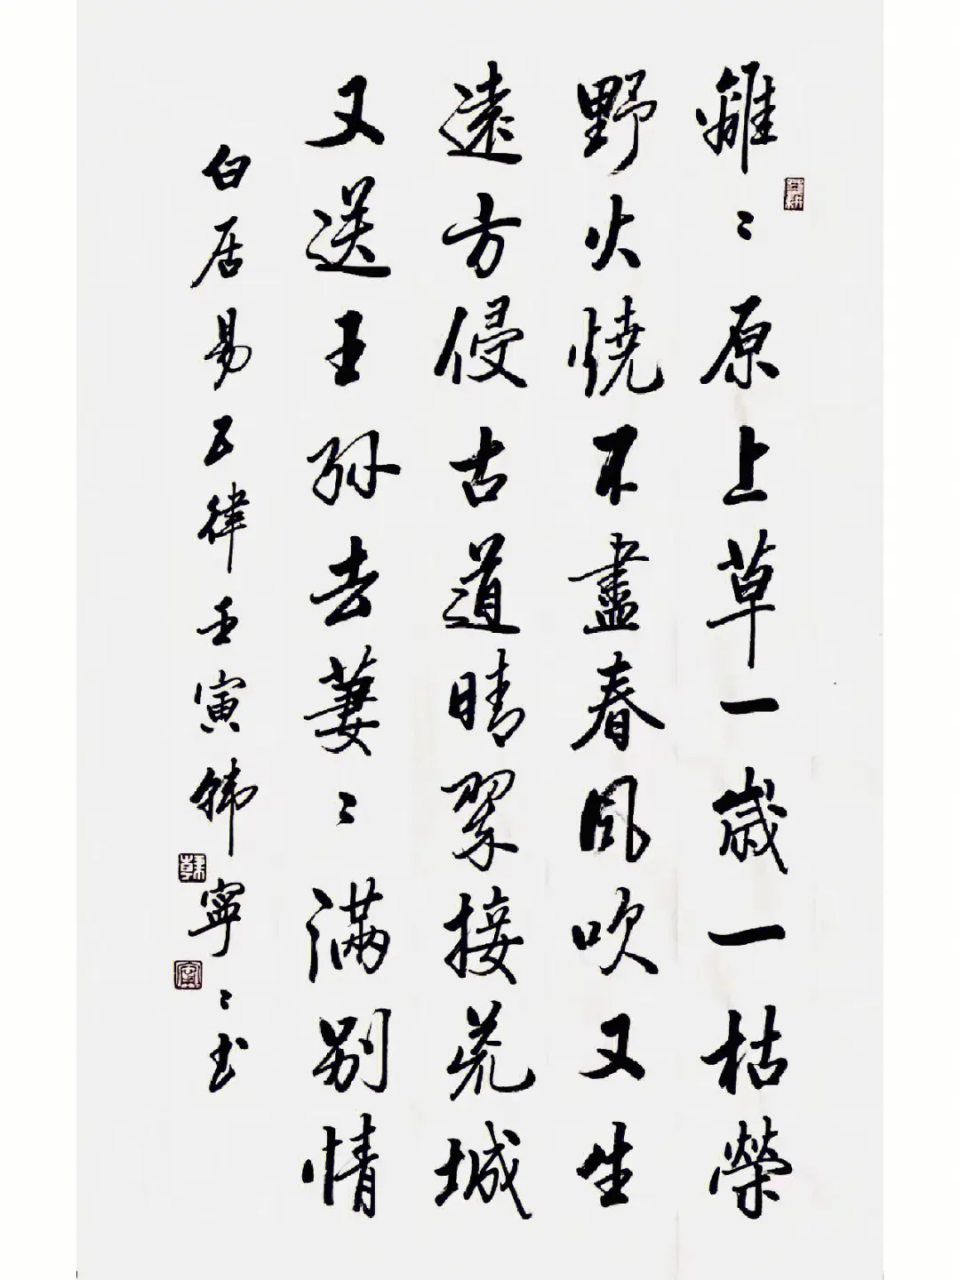 離〻原上草一歲一枯榮
野火燒不盡春風吹又生
遠方侵古道晴翠接荒城
又送王孫去萋〻滿別情
白居易五律壬寅韩寧〻书
韩
寧